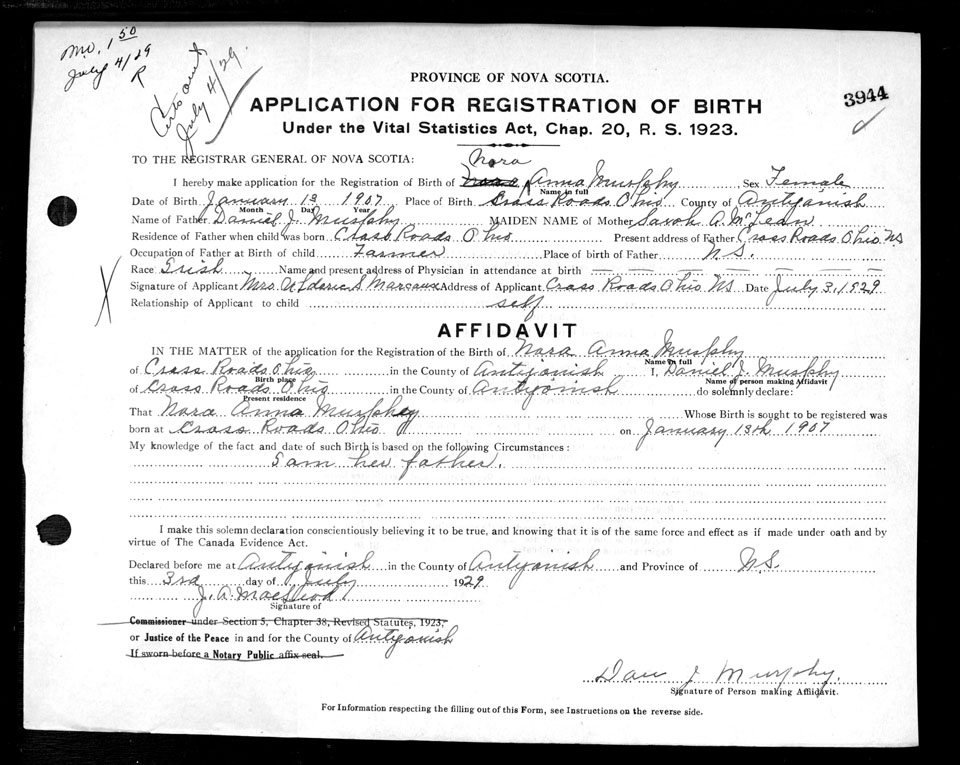 Mo. 1 50
July 4/29
R
July 4/29.
3944
PROVINCE OF NOVA SCOTIA.
APPLICATION FOR REGISTRATION OF BIRTH
Under the Vital Statistics Act, Chap. 20, R. S. 1923.
TO THE REGISTRAR GENERAL OF NOVA SCOTIA:
Nora
I hereby make application for the Registration of Birth of Anna Murphy Sex Female
Name in full
Date of Birth January 13 1907 Place of Birth Cross Roads Ohio County of Antigonish
Month Day Year
Name of Father Daniel J. Murphy MAIDEN NAME of Mother Sarah A. McLean
Residence of Father when child was born Cross Roads Ohio Present address of Father Cross Roads Ohio NS
Occupation of Father at Birth of child Farmer Place of birth of Father N.S.
Race Irish Name and present address of Physician in attendance at birth — — — — — —
Signature of Applicant Mrs. S Marcaux Address of Applicant Cross Roads Ohio NS Date July 3, 1929
Relationship of Applicant to child self
AFFIDAVIT
IN THE MATTER of the application for the Registration of the Birth of Nora Anna Murphy
Name in full
of Cross Roads Ohio in the County of Antigonish I, Daniel J. Murphy
Birth place Name of person making Affidavit
of Cross Roads Ohio in the County of Antigonish do solemnly declare:
Present residence
That Nora Anna Murphey Whose Birth is sought to be registered was
born at Cross Roads Ohio on January 13th 1907
My knowledge of the fact and date of such Birth is based on the following Circumstances:
I am her father.
I make this solemn declaration conscientiously believing it to be true, and knowing that it is of the same force and effect as if made under oath and by
virtue of The Canada Evidence Act.
Declared before me at Antigonish in the County of Antigonish and Province of N.S.
this 3rd day of July 1929
J. A. MacLeod
Signature of
Commissioner under Section 5, Chapter 38, Revised Statutes, 1923,
or Justice of the Peace in and for the County of Antigonish
If sworn before a Notary Public affix seal.
Dan J Murphy.
Signature of Person making Affidavit.
For Information respecting the filling out of this Form, see Instructions on the reverse side.